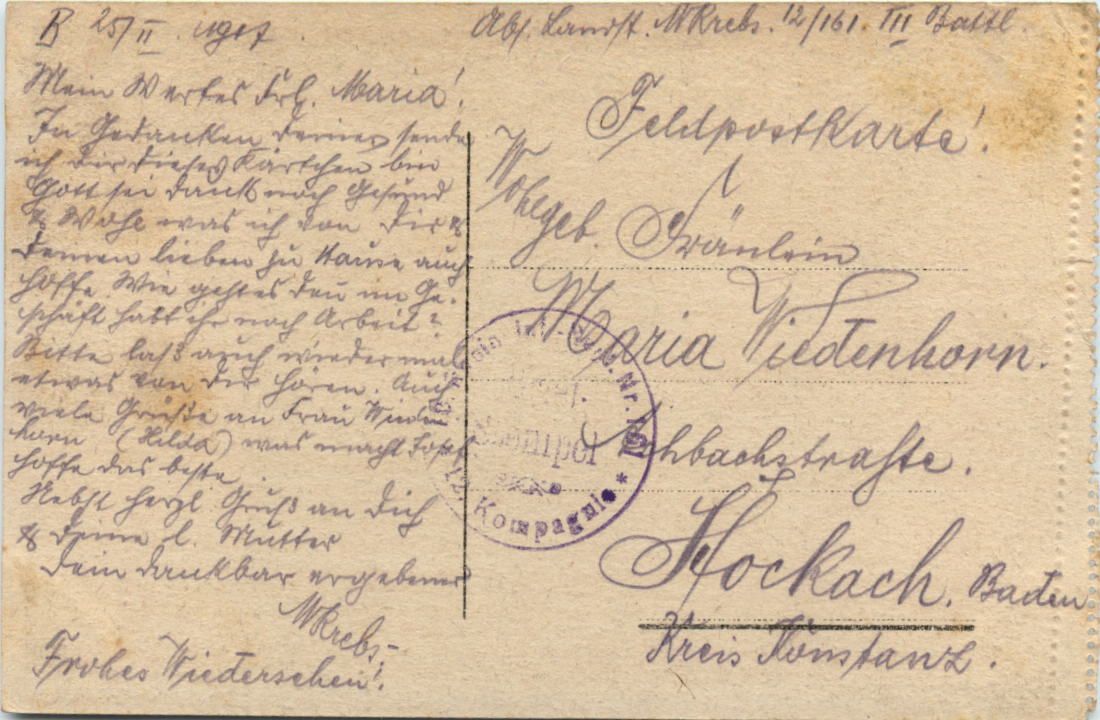 B 25/II. 1917.
Abs. Landst. MKrebs. 12/161. III Battl.
Mein Wertes Frl. Maria!
In Gedanken Deiner sende
ich Dir dieses Kärtchen bin
Gott sei dank noch Gesund
& Wohl was ich von Dir &
Deinen lieben zu Hause auch
hoffe Wie geht es den im Ge-
schäft habt ihr noch Arbeit?
Bitte laß auch wieder mal
etwas von Dir hören. Auch
viele Grüße an Frau Wieden
horn (Hilda) was macht Josef
hoffe das beste
Nebst herzl Gruß an Dich
& Deine l. Mutter
Dein dankbar ergebener
MKrebs-
Frohes Wiedersehen!
Feldpostkarte!
Wohlgeb. Fräulein
Maria Wiedenhorn.
Stockach. Baden
Kreis Konstanz.
Inf.-Regt. Nr. 161
12. Kompagnie *